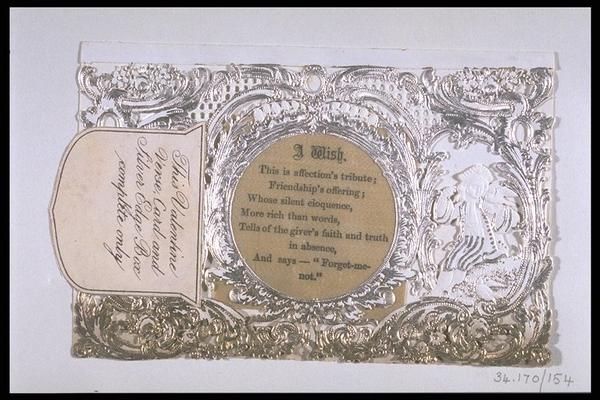 This Valentine
Verse Card and
Silver Edge Box
complete only
A Wish.
This is affection's tribute;
Friendship's offering;
Whose silent eloquence,
More rich than words,
Tells of the giver's faith and truth
in absence,
And says — "Forget-me-
not."
34.170/154